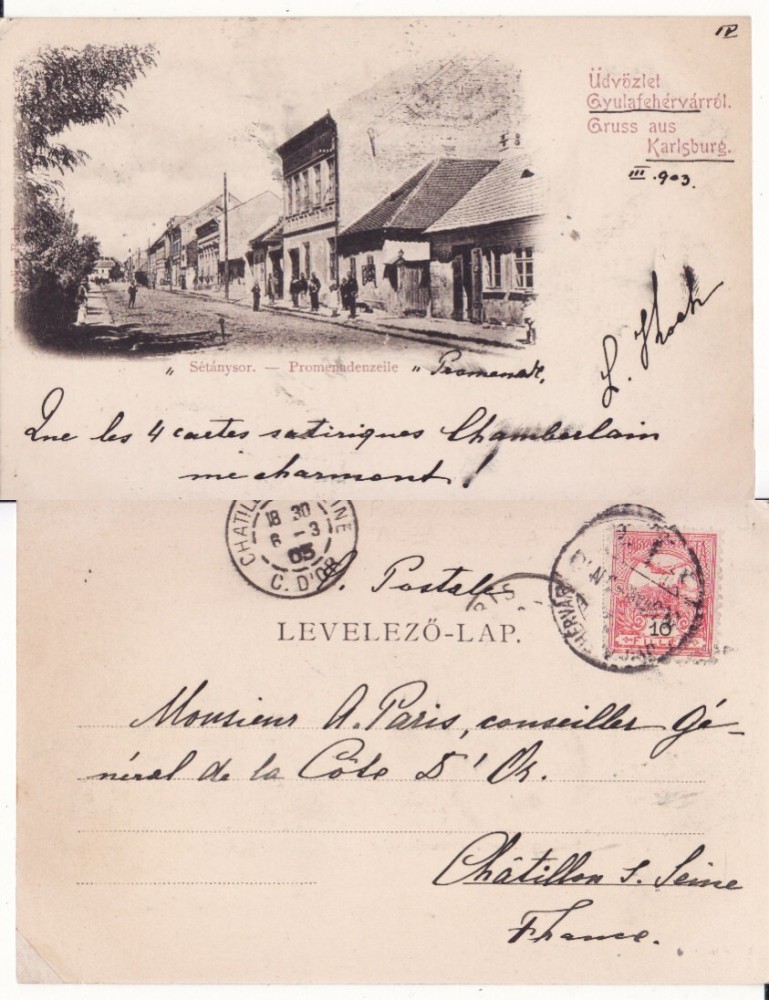 IV
Üdvözlet
Gyulafehérvárról.
Gruss aus
Karlsburg.
III.903.
" Sétánysor. — Promenadenzeile " Promenade,
Que les 4 cartes satiriques Chamberlain
me charment!
18 30
6 -3
03
C. D'OR
C. Postale
LEVELEZŐ-LAP.
10
FILLÉR
Monsieur A. Paris, conseiller Gé-
néral de la Côte D'Or.
Châtillon s. Seine
France.